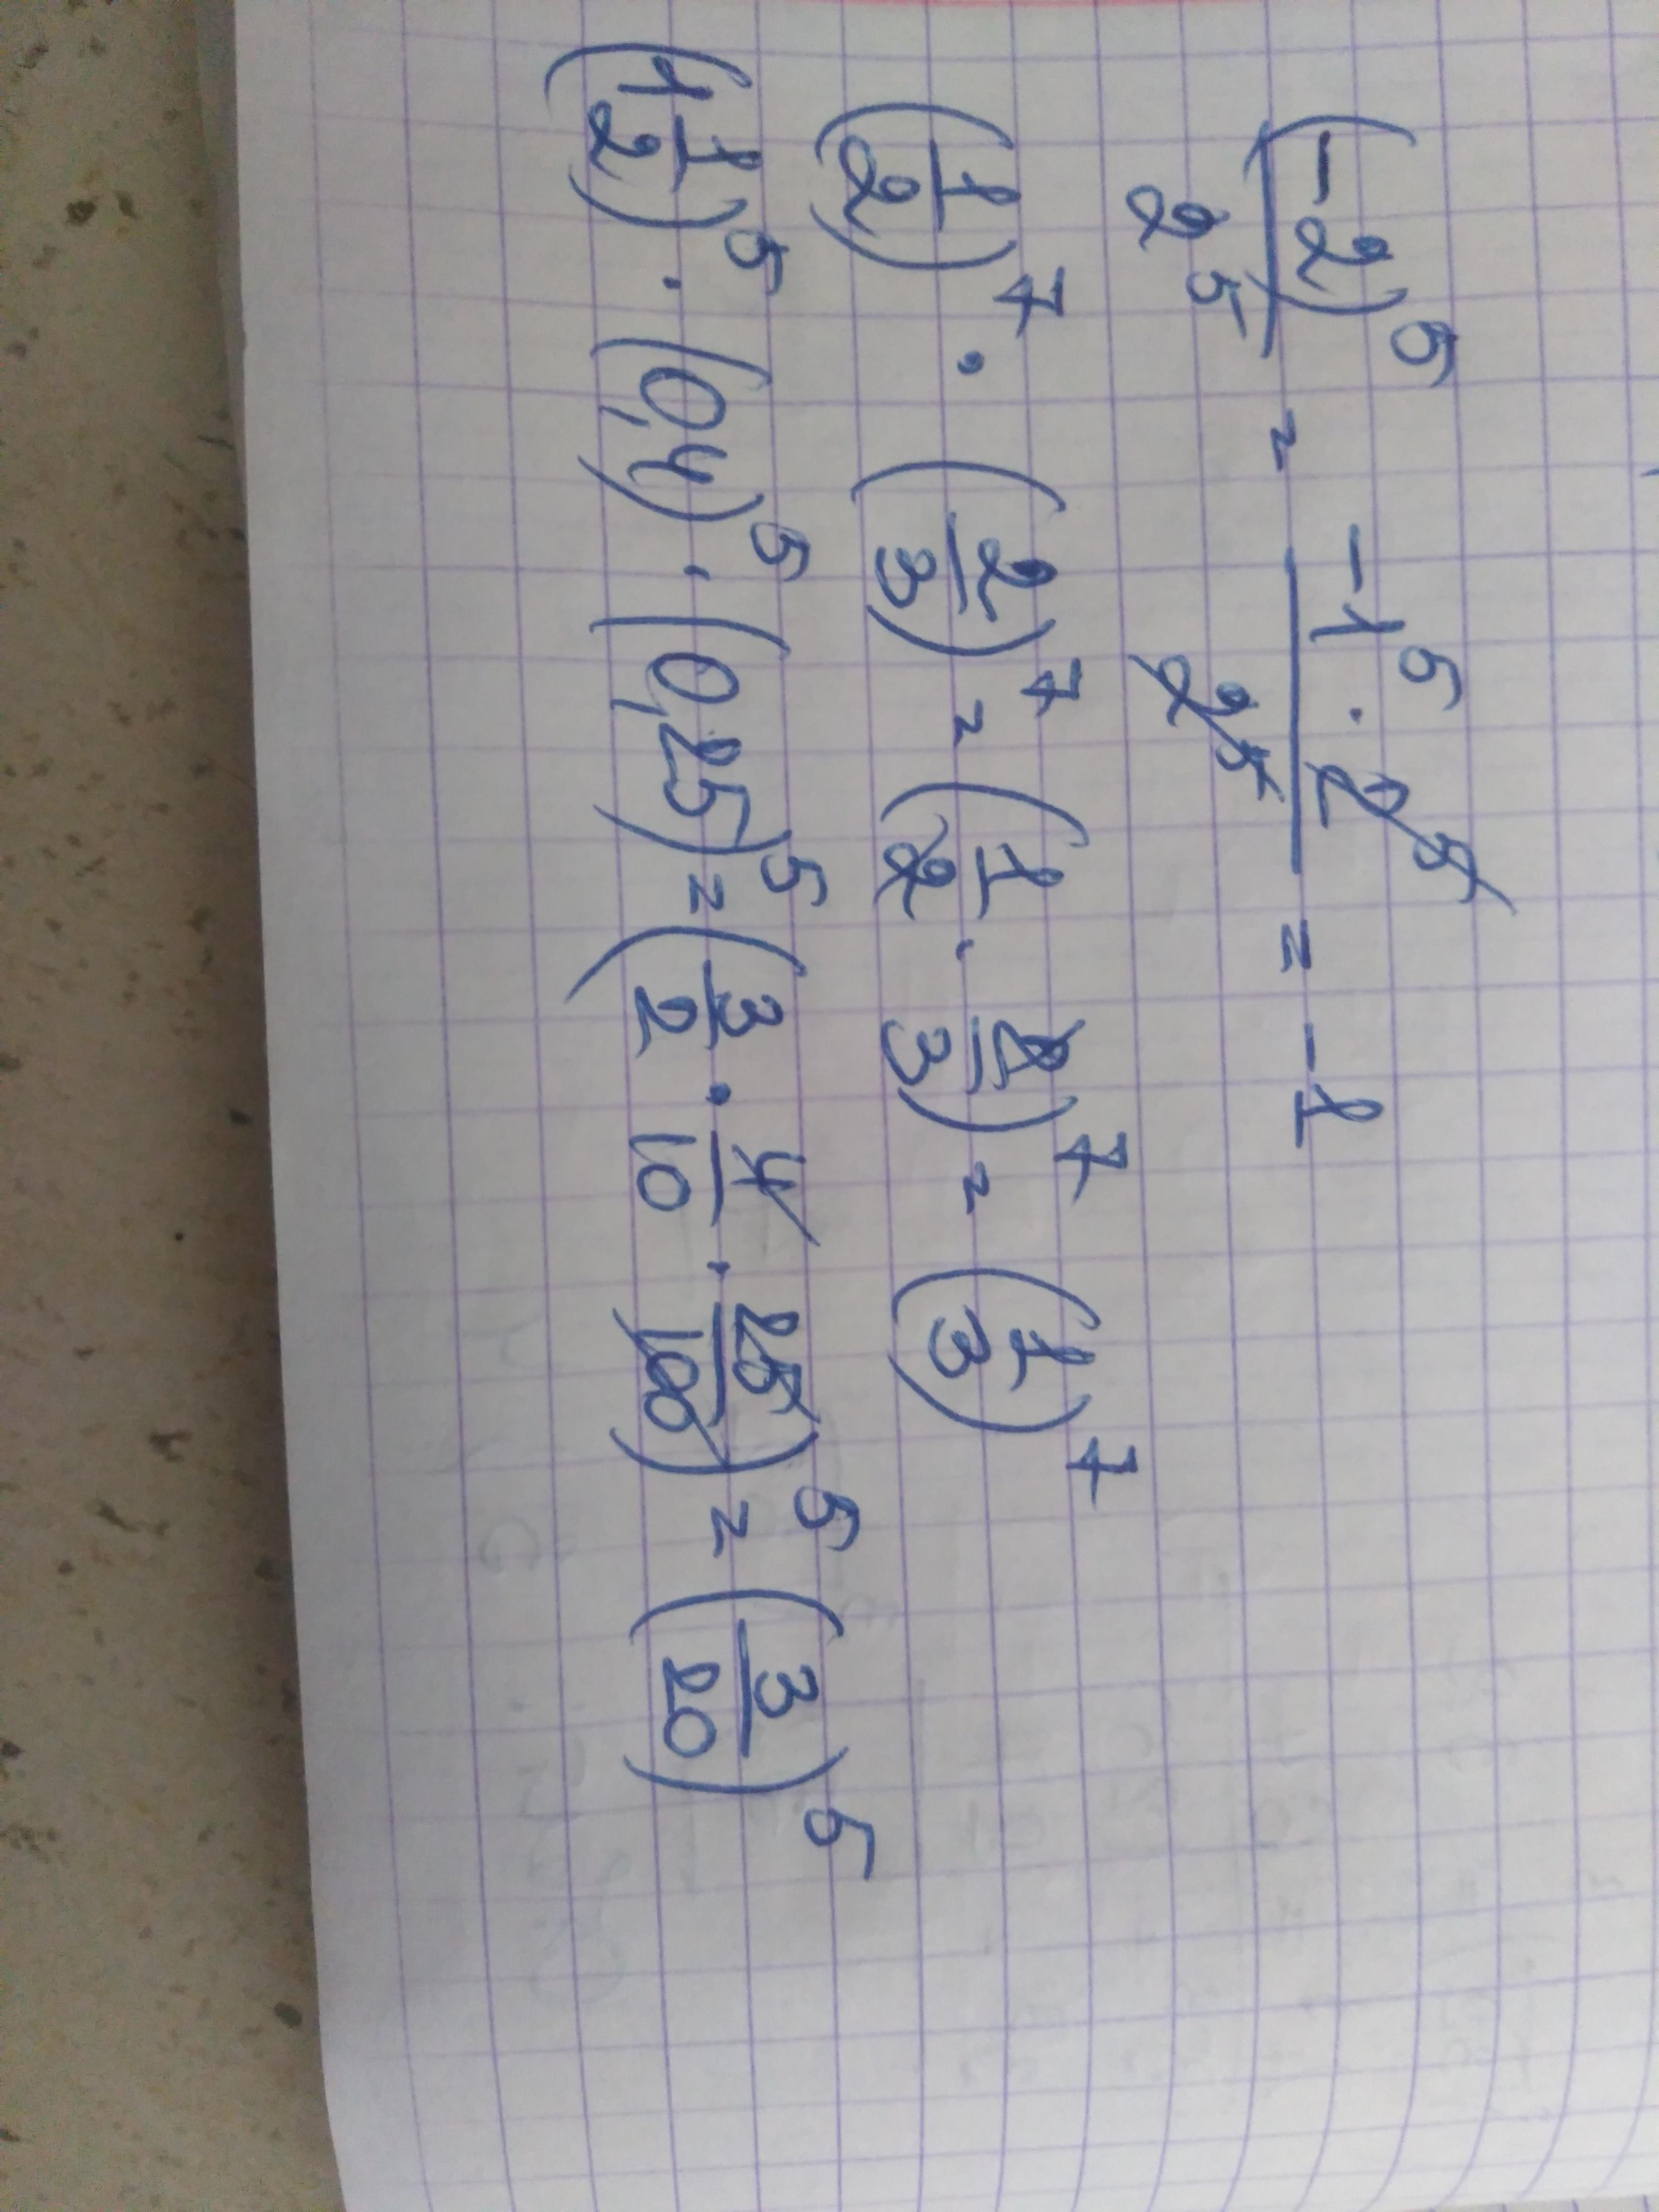 (-2)⁵/2⁵ = -1⁵ · 2⁵/2⁵ = -1
(1/2)⁷ · (2/3)⁷ = (1/2 · 2/3)⁷ = (1/3)⁷
(1 1/2)⁵ · (0,4)⁵ · (0,25)⁵ = (3/2 · 4/10 · 25/100)⁵ = (3/20)⁵